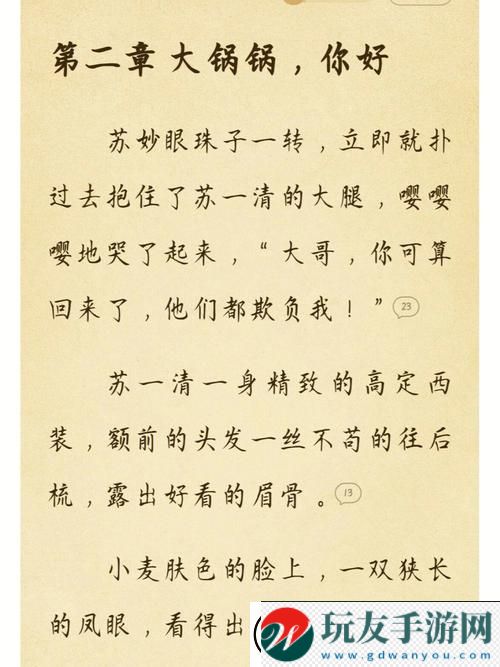 第二章 大锅锅，你好
苏妙眼珠子一转，立即就扑
过去抱住了苏一清的大腿，嘤嘤
嘤地哭了起来，“大哥，你可算
回来了，他们都欺负我！”
23
苏一清一身精致的高定西
装，额前的头发一丝不苟的往后
梳，露出好看的眉骨。
13
小麦肤色的脸上，一双狭长
的凤眼，看得出
玩友手游网
www.gdwanyou.com